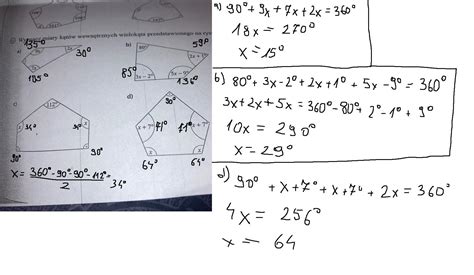 miary kątów wewnętrznych wielokąta przedstawionego na
a)
135°
30°
9x
7x
135°
b)
80°
59°
2x+1°
85°
3x-2°
5x-9°
136°
c)
112°
x
34°
x
34°
90°
90°
x = 360°-90°-90°-112° = 34°
2
d)
90°
x+7°
71°
71°
x+7°
x
x
64°
64°
a) 90°+9x+7x+2x=360°
18x = 270°
x=15°
b) 80°+3x-2°+2x+1°+5x-9°=360°
3x+2x+5x=360°-80°+2°-1°+9°
10x = 290°
x=29°
d) 90°+x+7°+x+7°+2x=360°
4x = 256°
x = 64